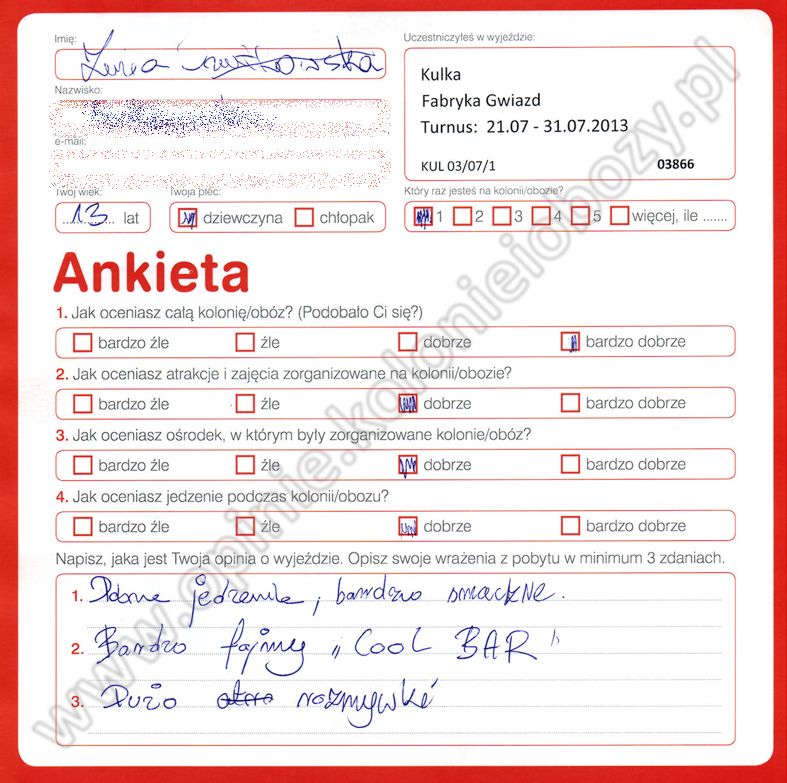 Imię:
Uczestniczyłeś w wyjeździe:
Kulka
Fabryka Gwiazd
Turnus: 21.07 - 31.07.2013
KUL 03/07/1 03866
Nazwisko:
e-mail:
Twój wiek:
13 lat
Twoja płeć:
dziewczyna chłopak
Który raz jesteś na kolonii/obozie?
1 2 3 4 5 więcej, ile .......
Ankieta
1. Jak oceniasz całą kolonię/obóz? (Podobało Ci się?)
bardzo źle źle dobrze bardzo dobrze
2. Jak oceniasz atrakcje i zajęcia zorganizowane na kolonii/obozie?
bardzo źle źle dobrze bardzo dobrze
3. Jak oceniasz ośrodek, w którym były zorganizowane kolonie/obóz?
bardzo źle źle dobrze bardzo dobrze
4. Jak oceniasz jedzenie podczas kolonii/obozu?
bardzo źle źle dobrze bardzo dobrze
Napisz, jaka jest Twoja opinia o wyjeździe. Opisz swoje wrażenia z pobytu w minimum 3 zdaniach.
1. jedzenie, bardzo smaczne.
2. Bardzo fajny „COOL BAR"
3. Dużo rozrywki
www.opinie.kolonieiobozy.pl